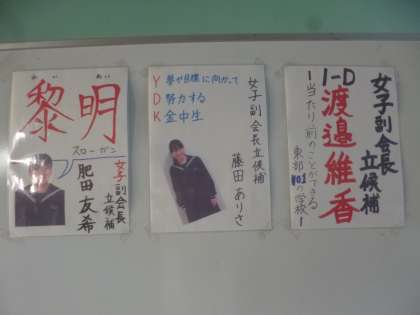 れい めい
黎明
スローガン
女子副会長
立候補
肥田 友希
Y 夢や目標に向かって
D 努力する
K 金中生
女子副会長立候補
藤田 ありさ
女子副会長
立候補
1-D 渡邉維香
ー当たり前のことができる
東部No.1の学校ー